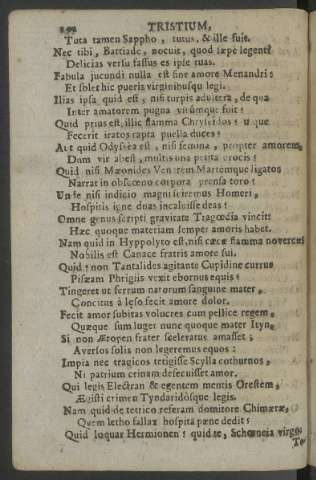 TRISTIUM,
Tuta tamen Sappho, tutus, & ille fuit.
Nec tibi, Battiade, nocuit, quod sæpè legenti
Delicias versu fassus es ipse tuas.
Fabula jucundi nulla est sine amore Menandri:
Et solet hic pueris virginibusqu legi.
Ilias ipsa quid est, nisi turpis adultera, de qua
Inter amatorem pugna virumque fuit?
Quid prius est, illic flamma Chryseidos? u que
Fecerit iratos rapta puella duces?
Aut quid Odyssèa est, nisi femina, propter amorem,
Dum vir abest, multis una petita procis?
Quid nisi Mæonides Venerem Martemque ligatos
Narrat in obscœno corpora prensa toro?
Unde nisi indicio magni sciremus Homeri,
Hospitis igne duas incaluisse deas?
Omne genus scripti gravitate Tragœdia vincit:
Hæc quoque materiam semper amoris habet.
Nam quid in Hyppolyto est, nisi cæcæ flamma novercæ?
Nobilis est Canace fratris amore sui.
Quid? non Tantalides agitante Cupidine currus
Pisæam Phrigiis vexit ebornus equis?
Tingeret ut ferrum natorum sanguine mater,
Concitus à læso fecit amore dolor.
Fecit amor subitas volucres cum pellice regem,
Quæque suum luget nunc quoque mater Ityn.
Si non Æropen frater sceleratus amasset;
Aversos solis non legeremus equos:
Impia nec tragicos tetigisse Scylla cothurnos,
Ni patrium crinem desecuisset amor.
Qui legis Electran & egentem mentis Orestem,
Ægisti crimen Tyndaridosque legis.
Nam quid de tetrico referam domitore Chimæræ,
Quem letho fallax hospita pæne dedit?
Quid loquar Hermionen? quid te, Schœneia virgo?